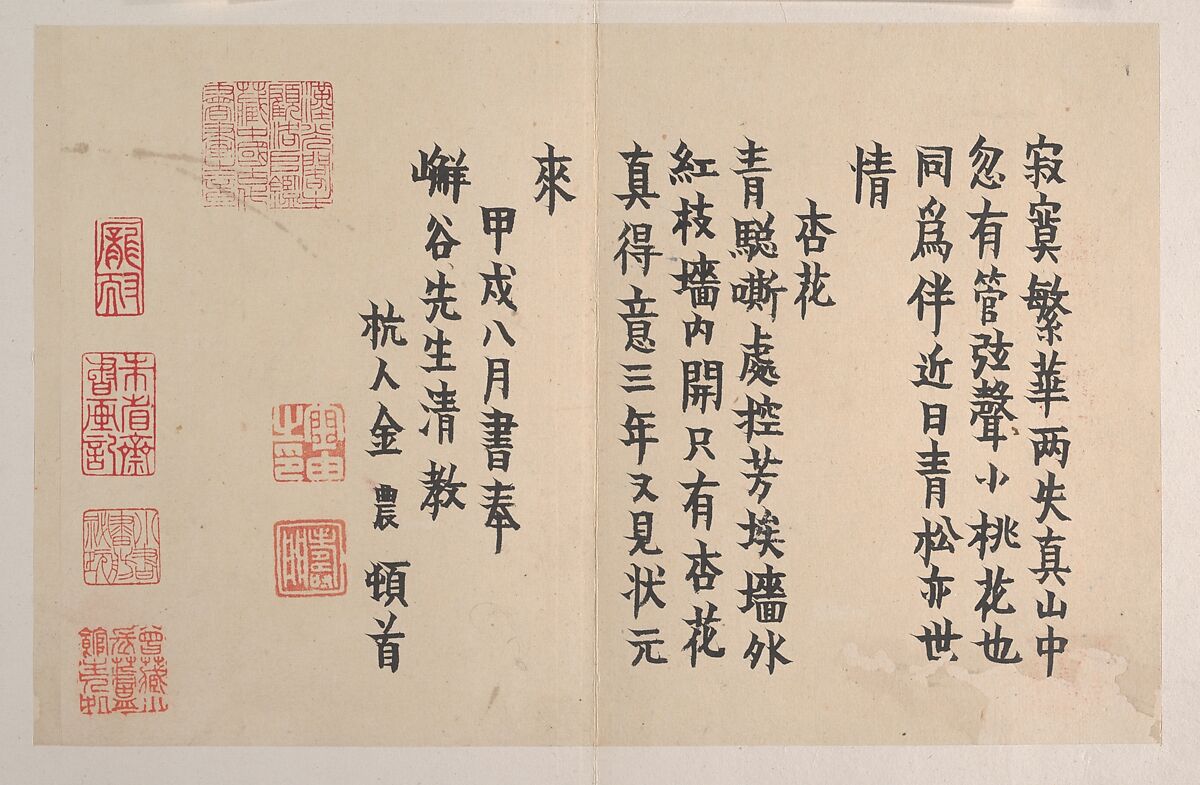 寂寞繁華两失真山中
忽有管弦聲小桃花也
同爲伴近日青松亦世
情
杏花
青驄嘶處控芳埃墻外
紅枝墻内開只有杏花
真得意三年又見状元
來
甲戍八月書奉
嶰谷先生清教
杭人金農頓首